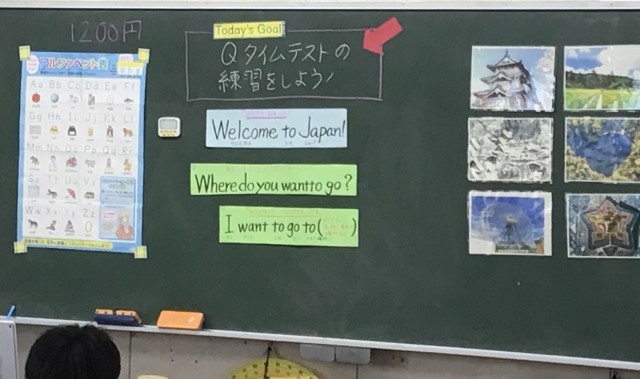 1200円
Today's Goal
Qタイムテストの
練習をしよう!
アルファベット表
Aa Bb Cc Dd Ee Ff
Gg Hh Ii Jj Kk Ll
Mm Nn Oo Pp Qq Rr
Ss Tt Uu Vv
Ww Xx Yy Zz
Welcome to Japan!
Where do you want to go?
I want to go to ( )